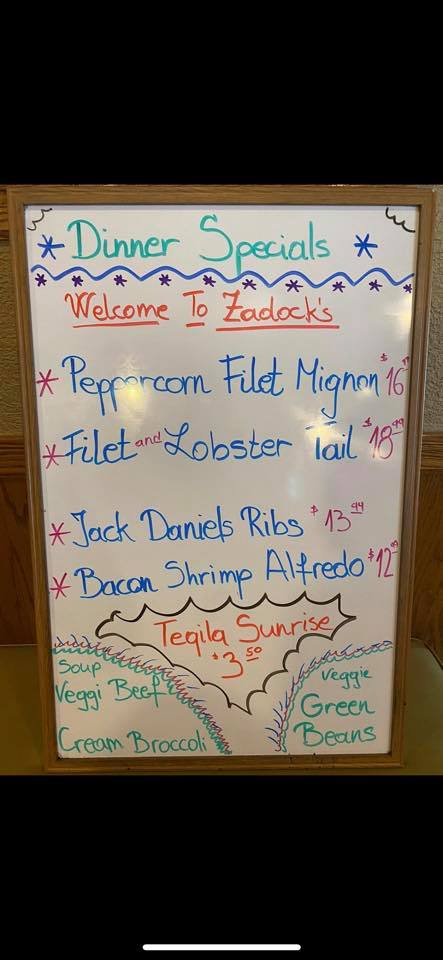 * Dinner Specials *
Welcome To Zadock's
* Peppercorn Filet Mignon $16
* Filet and Lobster Tail $18.99
* Jack Daniels Ribs $13.99
* Bacon Shrimp Alfredo $12.99
Teqila Sunrise
$3.50
Soup
Veggi Beef
Cream Broccoli
Veggie
Green
Beans